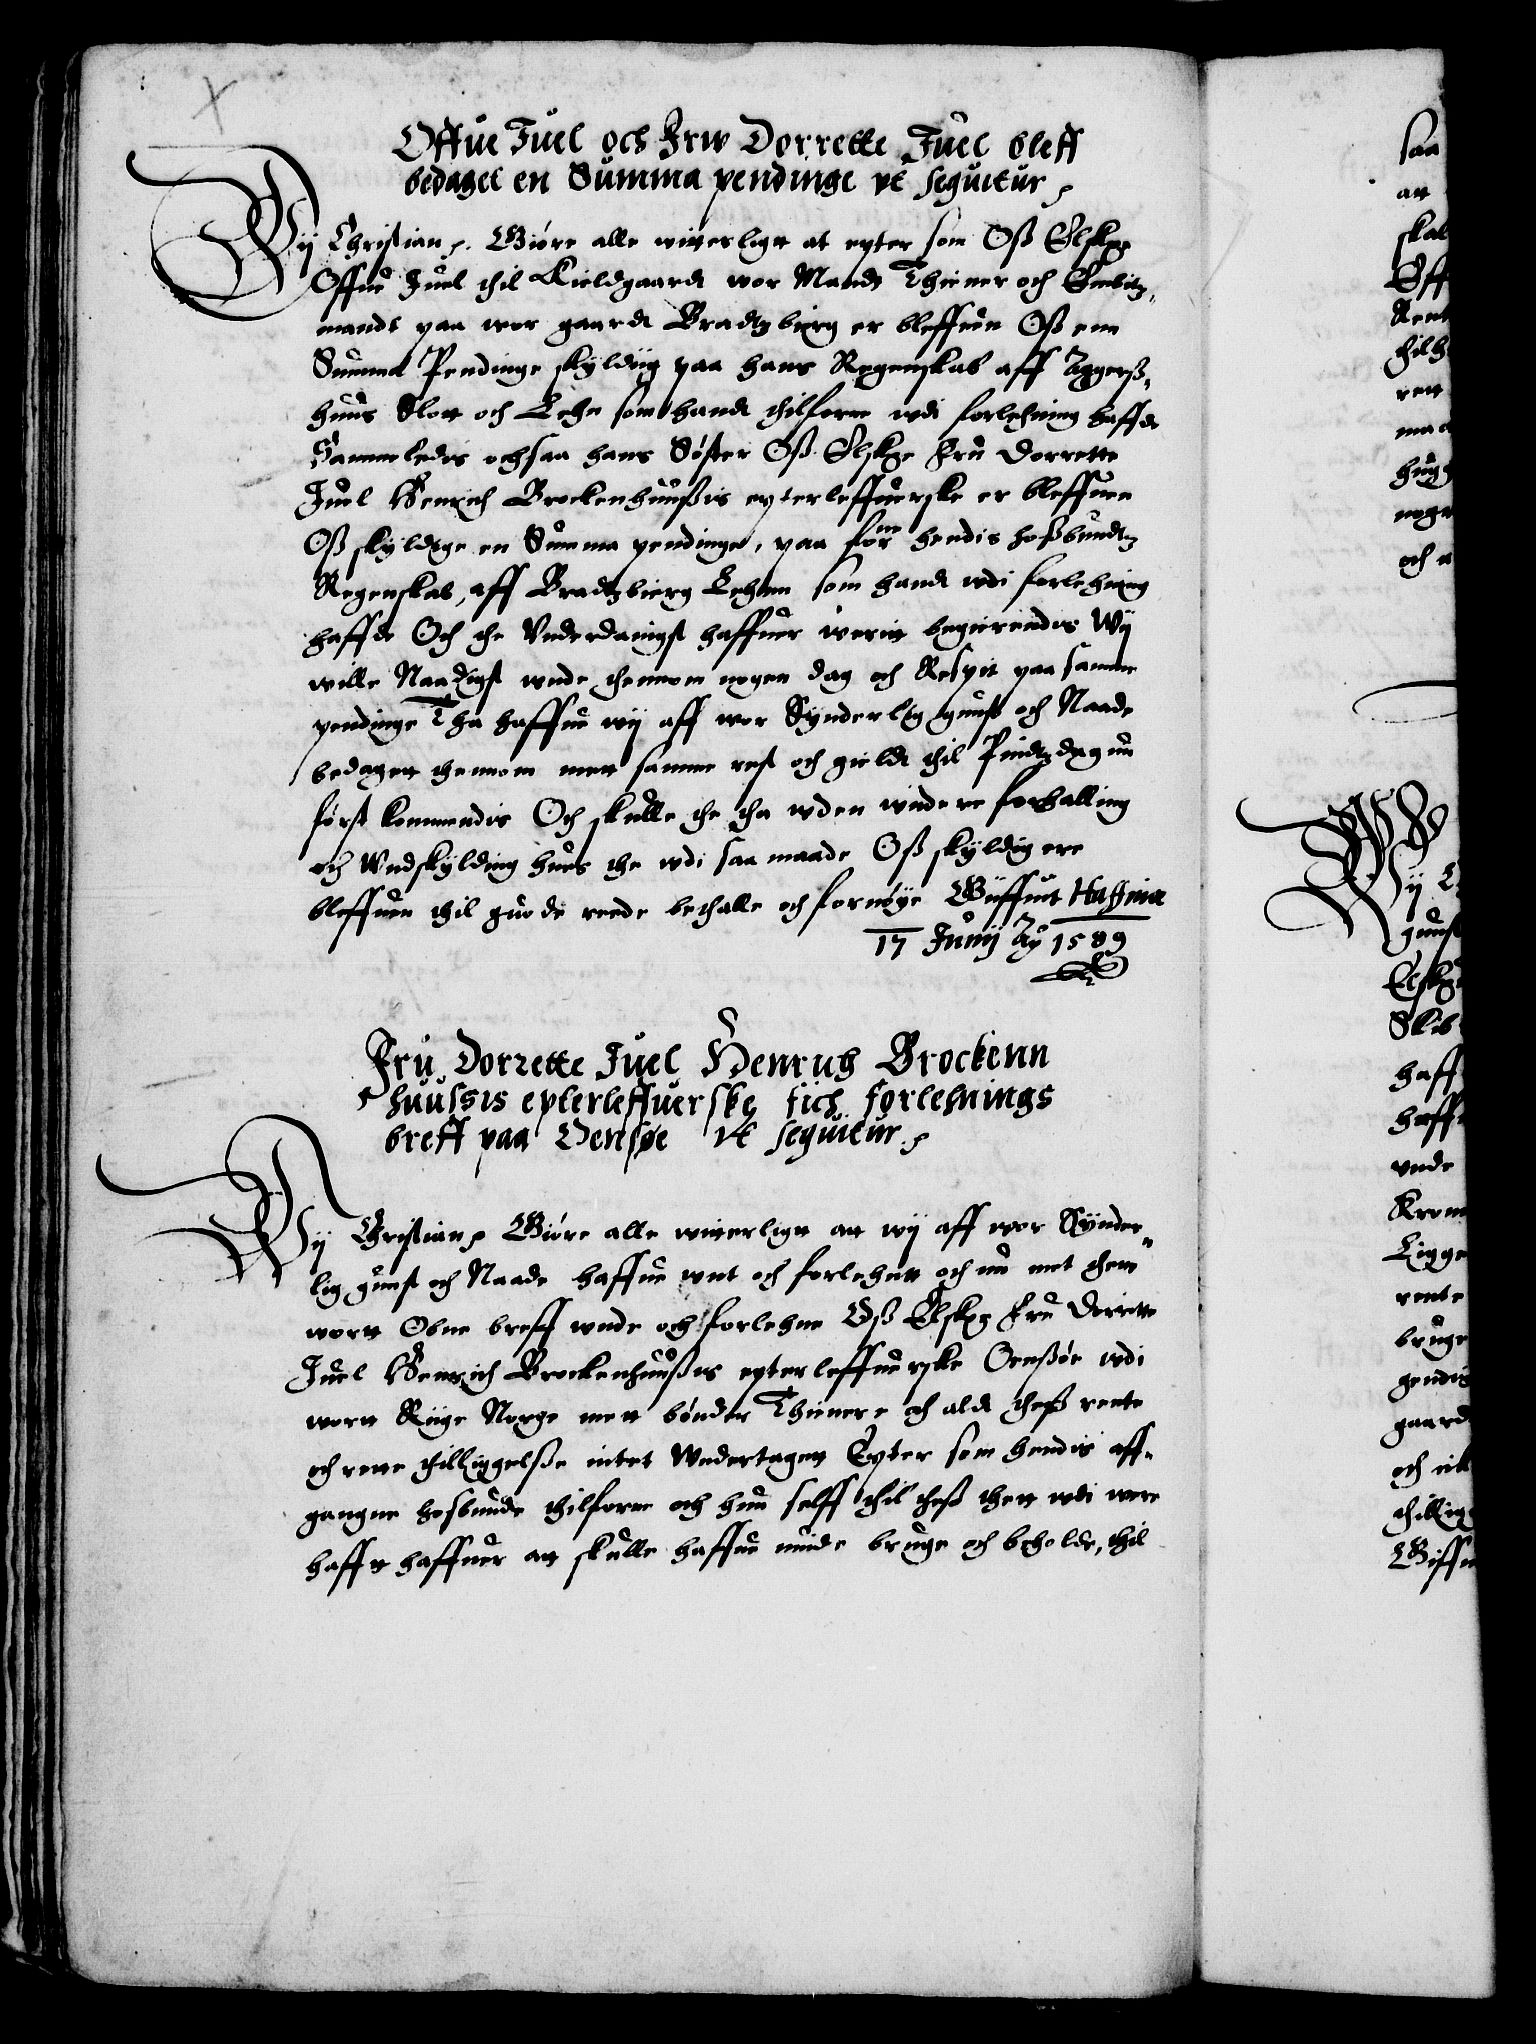 Offue Juel och Frw Dorrette Juel bleff
bedaget en Summa pendinge vt seguitur
Wij Christian p. Giøre alle witterligtt at epter som Oss Elskge
Offue Juel thil Kieldgaardt wor Mandt Thiener och Embitz-
mandt paa wor gaardt Bradtzbierg er bleffuen Oss enn
Summa Pendinge skyldig paa hans Regenskab aff Aggerss-
huus Slott och Lehn som handt thilforne wdi forlehning haffde
Sammeledis ochsaa hans Søster Oss Elskge Fru Dorrette
Juel Henrich Brockenhuussis epterleffuerske er bleffuen
Oss skyldige en Summa pendinge, paa forne hendis hossbundtz
Regenskab, aff Bradtzbierg Lehnn som handt wdi forlehning
haffde Och the Vnderdanigst haffuer werit begierendis Wij
wille Naadigst wnde thennom nogen dag och Respit paa samme
pendinge Tha haffue wij aff wor Synderlig gunst och Naade
bedagett thennom mett samme rest och gieldt thil Pindtzdag nu
først kommendis Och skulle the tha wden widere forhalling
och Wndskylding hues the wdi saa maade Oss skyldig ere
bleffuen thil guode rede bethalle och fornøye Giffuit Haffniæ
17 Junij Ao 1589
Fru Dorrette Juel Henrich Brockenn
huussis epterleffuerske fich forlehnings
breff paa Oensøe vt seguitur
Wij Christian p Giøre alle witterligtt att wij aff wor Synder-
lig gunst och Naade haffue wnt och forlehnt och nu met thette
wortt Obne breff wnde och forlehne Oss Elskge Fru Dorrette
Juel Henrich Brockenhuussis epterleffuerske Oenssøe wdi
wortt Riige Norge mett bønder Thienere och aldt thess rente
och rette thilliggelsse intet Wndertagett Epter som hendis aff-
gangne hosbunde thilforne och hun selff thil thess thett wdi were
hafft haffuer att skulle haffue niude bruge och beholde, thil
saa
att
skal
Eff
Rent
thilh
rett
maa
hug
noge
och a
Wij C
gunst
Elskge
Skib
haff
haff
vnde
Kron
Ligge
rente
bruge
gendis
gaard
och ik
thillig
Giffu